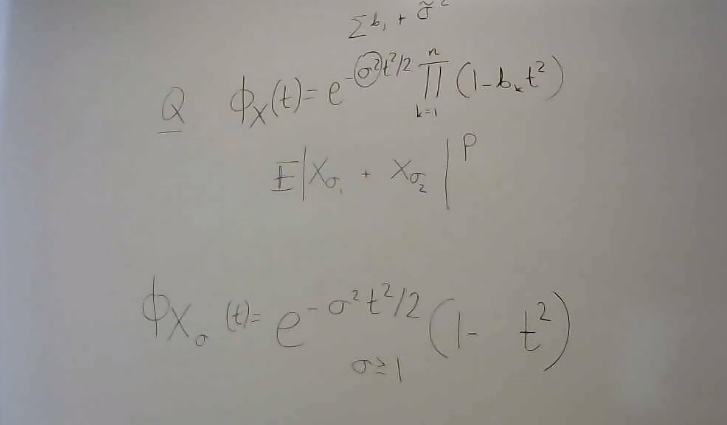 ∑ b₁ + σ̃²
Q ϕ_X(t) = e^{-σ²t²/2} ∏_{k=1}^{n} (1 - b_k t²)
E|X_{σ₁} + X_{σ₂}|^p
ϕ_{X_σ}(t) = e^{-σ²t²/2} (1 - t²)
σ ≥ 1